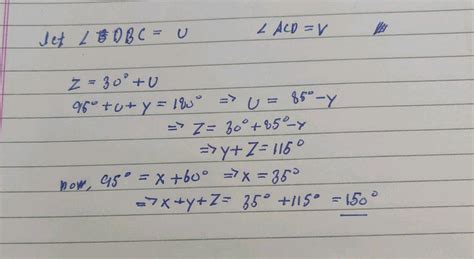 let ∠DBC = U ∠ACD = V
Z = 30° + U
95° + U + y = 180° ⇒ U = 85° - y
⇒ Z = 30° + 85° - y
⇒ y + Z = 115°
now, 95° = x + 60° ⇒ x = 35°
⇒ x + y + Z = 35° + 115° = 150°